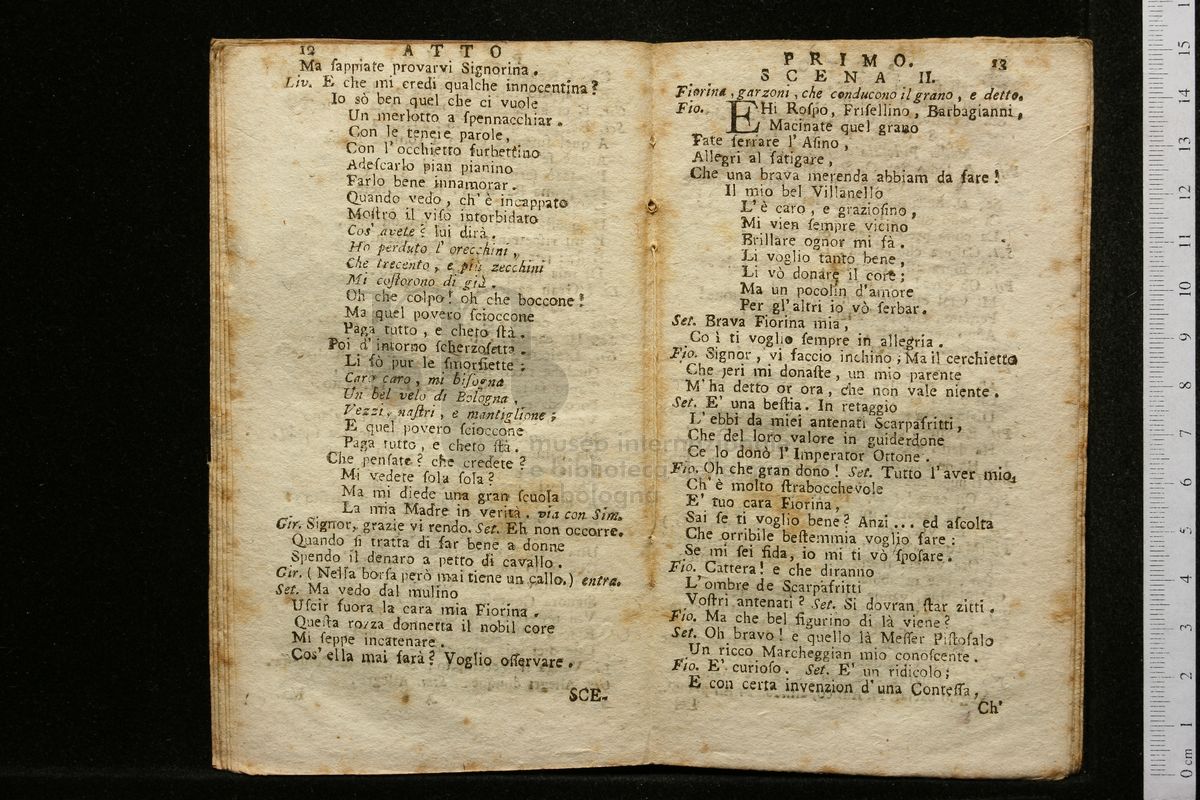 12 ATTO
Ma sappiate provarvi Signorina.
Liv. E che mi credi qualche innocentina?
Io sò ben quel che ci vuole
Un merlotto a spennacchiar.
Con le tenere parole,
Con l'occhietto furbettino
Adescarlo pian pianino
Farlo bene innamorar.
Quando vedo, ch'è incappato
Mostrò il viso intorbidato
Cos' avete? lui dirà.
Ho perduto l'orecchini,
Che trecento, e più zecchini
Mi costorono di già.
Oh che colpo! oh che boccone!
Ma quel povero scioccone
Paga tutto, e cheto stà.
Poi d'intorno scherzosetta.
Li fò pur le smorfiette:
Caro caro, mi bisogna
Un bel velo di Bologna,
Vezzi, nastri, e mantiglione;
E quel povero scioccone
Paga tutto, e cheto stà.
Che pensate? che credete?
Mi vedete sola sola?
Ma mi diede una gran scuola
La mia Madre in verità. via con Sim.
Gir. Signor, grazie vi rendo. Set. Eh non occorre.
Quando si tratta di far bene a donne
Spendo il denaro a petto di cavallo.
Gir. (Nella borsa però mai tiene un callo.) entra.
Set. Ma vedo dal mulino
Uscir fuora la cara mia Fiorina.
Questa rozza donnetta il nobil core
Mi seppe incatenare.
Cos'ella mai farà? Voglio osservare.
SCE-
PRIMO. 13
SCENA II.
Fiorina, garzoni, che conducono il grano, e detto.
Fio. EHi Rospo, Frisellino, Barbagianni,
Macinate quel grano
Fate ferrare l'Asino,
Allegri al fatigare,
Che una brava merenda abbiam da fare!
Il mio bel Villanello
L'è caro, e graziosino,
Mi vien sempre vicino
Brillare ognor mi fà.
Li voglio tanto bene,
Li vò donare il core;
Ma un pocolin d'amore
Per gl'altri io vò serbar.
Set. Brava Fiorina mia,
Co ì ti voglio sempre in allegria.
Fio. Signor, vi faccio inchino; Ma il cerchietto
Che jeri mi donaste, un mio parente
M'ha detto or ora, che non vale niente.
Set. E' una bestia. In retaggio
L'ebbi da miei antenati Scarpafritti,
Che del loro valore in guiderdone
Ce lo donò l'Imperator Ottone.
Fio. Oh che gran dono! Set. Tutto l'aver mio,
Ch'è molto strabocchevole
E' tuo cara Fiorina,
Sai se ti voglio bene? Anzi... ed ascolta
Che orribile bestemmia voglio fare:
Se mi sei fida, io mi ti vò sposare.
Fio. Cattera! e che diranno
L'ombre de Scarpafritti
Vostri antenati? Set. Si dovran star zitti.
Fio. Ma che bel figurino di là viene?
Set. Oh bravo! e quello là Messer Pistofalo
Un ricco Marcheggian mio conoscente.
Fio. E' curioso. Set. E' un ridicolo;
E con certa invenzion d'una Contessa,
Ch'